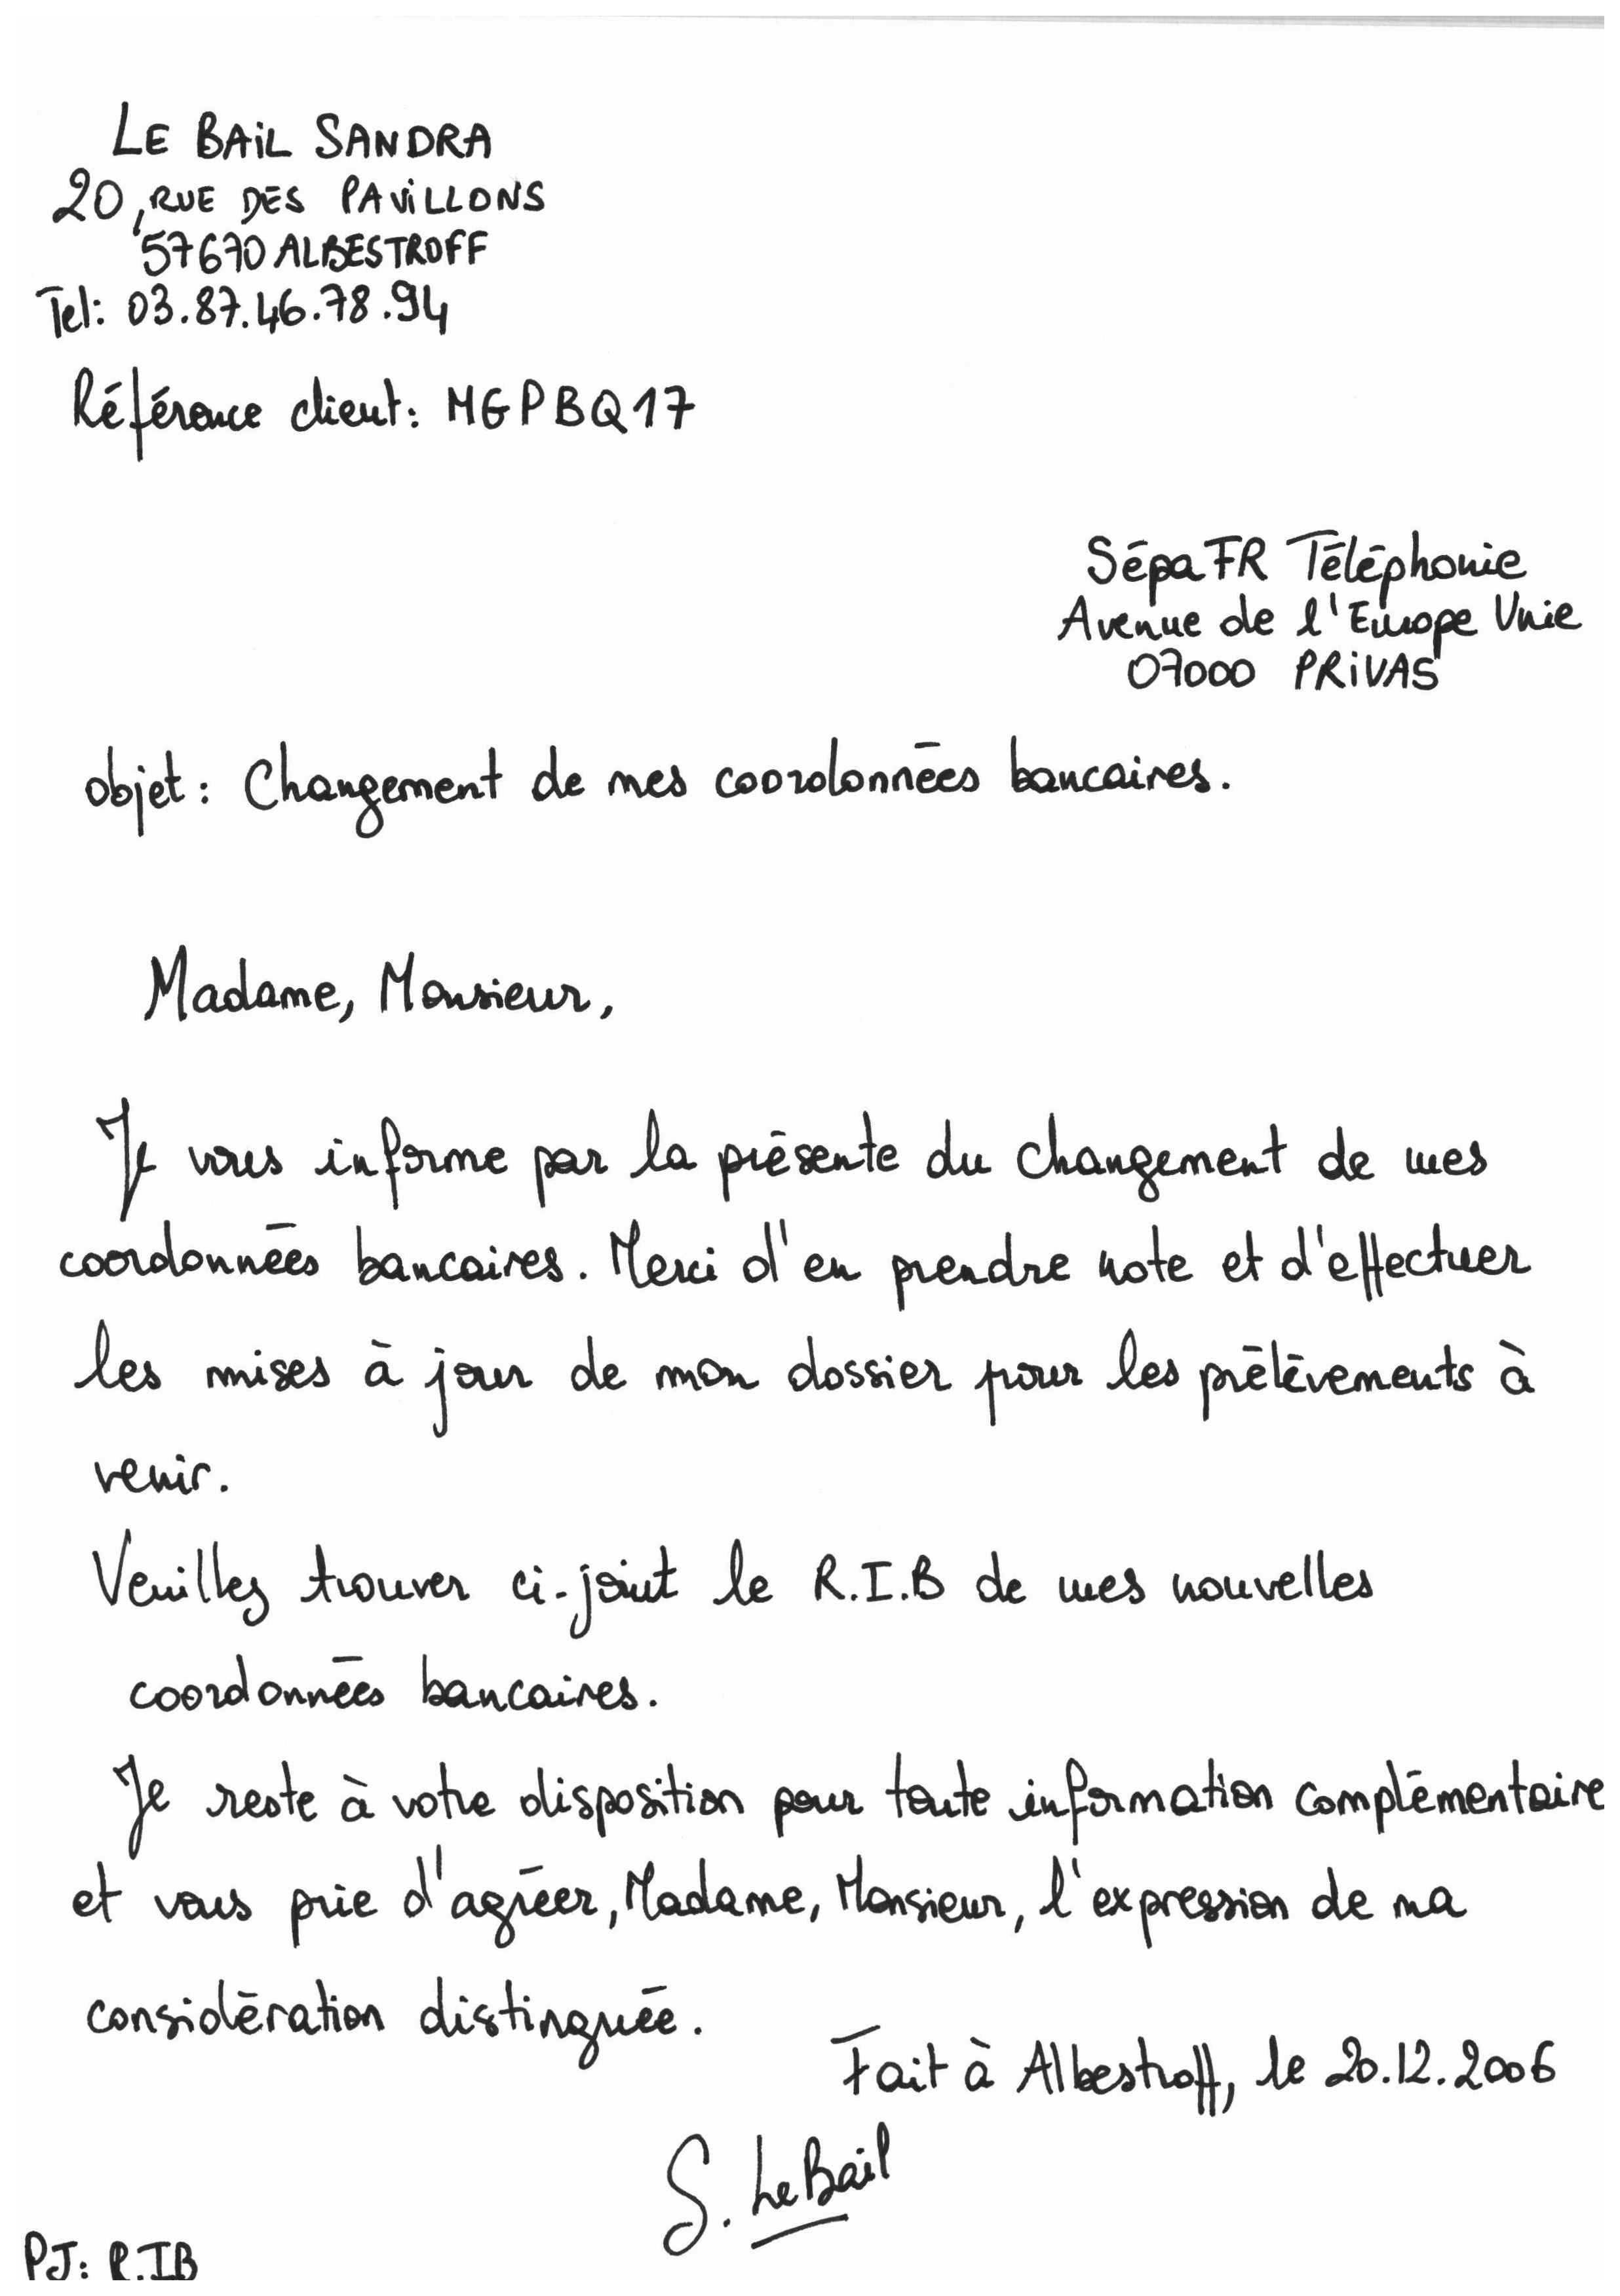 LE BAIL SANDRA
20, RUE DES PAVILLONS
57670 ALBESTROFF
Tel: 03.87.46.78.94
Référence client: MGPBQ17
Sépa FR Téléphonie
Avenue de l'Europe Unie
07000 PRIVAS
objet: Changement de mes coordonnées bancaires.
Madame, Monsieur,
Je vous informe par la présente du changement de mes
coordonnées bancaires. Merci d'en prendre note et d'effectuer
les mises à jour de mon dossier pour les prélèvements à
venir.
Veuillez trouver ci-joint le R.I.B de mes nouvelles
coordonnées bancaires.
Je reste à votre disposition pour toute information complémentaire
et vous prie d'agréer, Madame, Monsieur, l'expression de ma
considération distinguée.
Fait à Albestroff, le 20.12.2006
S. Le Bail
PJ: R.IB